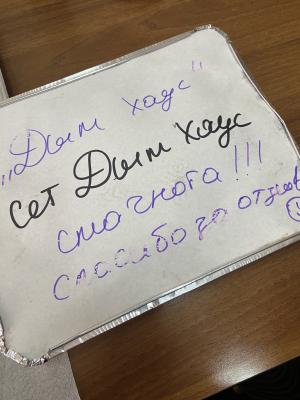 „Дым хаус"
сет Дым Хаус
смачнота!!!
спасибо за отзыв